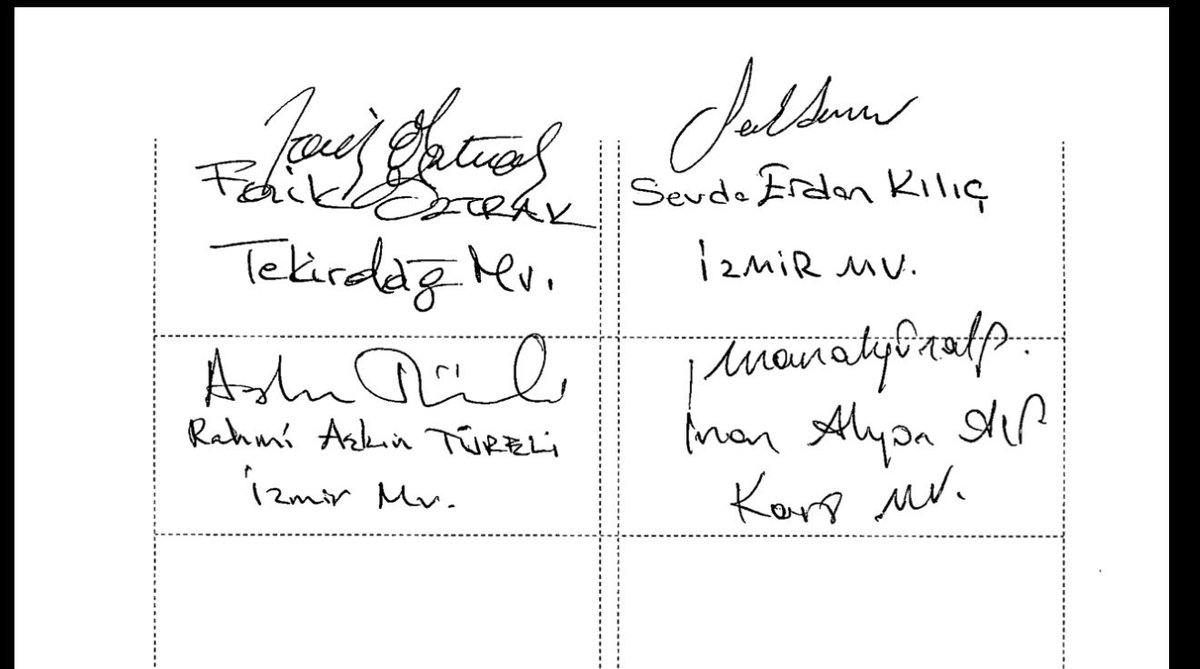 Faik Öztrak
Faik ÖZTRAK
Tekirdağ Mv.
Sevda Erdan Kılıç
İZMİR MV.
Rahmi Aşkın TÜRELİ
İzmir Mv.
İnan Akgün Alp
Kars MV.